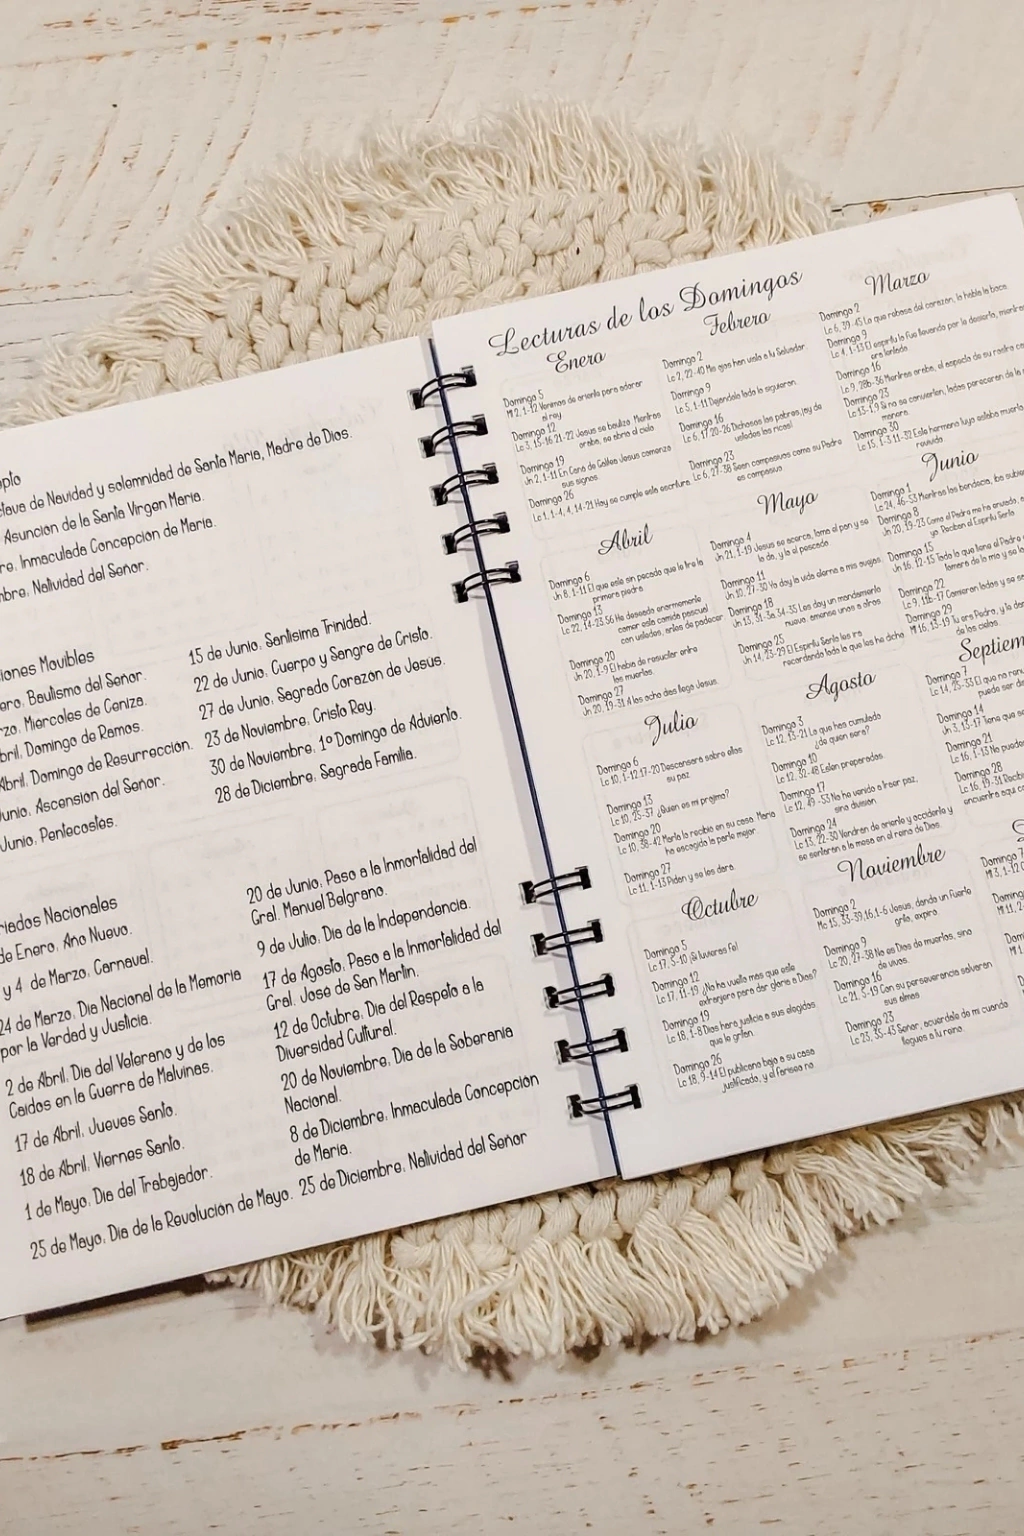 clava de Navidad y solemnidad de Santa Maria, Madre de Dios.
Asunción de la Santa Virgen Maria.
re, Inmaculada Concepcion de Maria.
mbre, Natividad del Señor.
iones Movibles
ero, Bautismo del Señor.
rzo, Miercoles de Ceniza.
bril, Domingo de Ramos.
Abril, Domingo de Resurrección.
unio, Ascension del Señor.
Junio, Pentecostes.
15 de Junio, Santisima Trinidad.
22 de Junio, Cuerpo y Sangre de Cristo.
27 de Junio, Sagrado Corazon de Jesus.
23 de Noviembre, Cristo Rey.
30 de Noviembre, 1° Domingo de Adviento.
28 de Diciembre, Sagrada Familia.
riados Nacionales
de Enero, Año Nuevo.
y 4 de Marzo, Carnaval.
24 de Marzo, Dia Nacional de la Memoria
por la Verdad y Justicia.
2 de Abril, Dia del Veterano y de los
Caidos en la Guerra de Malvinas.
17 de Abril, Jueves Santo.
18 de Abril, Viernes Santo.
1 de Mayo, Dia del Trabajador.
25 de Mayo, Dia de la Revolución de Mayo.
20 de Junio, Paso a la Inmortalidad del
Gral. Manuel Belgrano.
9 de Julio, Dia de la Independencia.
17 de Agosto, Paso a la Inmortalidad del
Gral. Jose de San Martin.
12 de Octubre, Dia del Respeto a la
Diversidad Cultural.
20 de Noviembre, Dia de la Soberania
Nacional.
8 de Diciembre, Inmaculada Concepción
de Maria.
25 de Diciembre, Natividad del Señor
Lecturas de los Domingos
Enero
Domingo 5
Mt 2, 1-12 Venimos de oriente para adorar
al rey
Domingo 12
Lc 3, 15-16 21-22 Jesus se bautiza. Mientras
oraba, se abrio el cielo
Domingo 19
Jn 2, 1-11 En Cana de Galilea Jesus comenzo
sus signos.
Domingo 26
Lc 1, 1-4, 4, 14-21 Hoy se cumple esta escritura
Febrero
Domingo 2
Lc 2, 22-40 Mis ojos han visto a tu Salvador.
Domingo 9
Lc 5, 1-11 Dejandolo todo lo siguieron.
Domingo 16
Lc 6, 17 20-26 Dichosos los pobres ¡ay de
ustedes los ricos!
Domingo 23
Lc 6, 27-38 Sean compasivos como su Padre
es compasivo
Marzo
Domingo 2
Lc 6, 39-45 Lo que rebosa del corazon, lo habla la boca
Domingo 9
Lc 4, 1-13 El espiritu lo fue llevando por el desierto,
era tentado
Domingo 16
Lc 9, 28b-36 Mientras oraba, el aspecto de su rostro
Domingo 23
Lc 13-1,9 Si no se convierten, todos pereceran de la
manera.
Domingo 30
Lc 15, 1-3.11-32 Este hermano tuyo estaba muerto
revivido
Abril
Domingo 6
Jn 8, 1-11 El que este sin pecado que le tire la
primera piedra
Domingo 13
Lc 22, 14-23.56 He deseado enormemente
comer esta comida pascual
con ustedes, antes de padecer
Domingo 20
Jn 20, 1-9 El habia de resucitar entre
los muertos.
Domingo 27
Jn 20, 19-31 A los ocho dias llego Jesus.
Mayo
Domingo 4
Jn 21, 1-19 Jesus se acerca, toma el pan y se
lo da, y lo el pescado
Domingo 11
Jn 10, 27-30 Yo doy la vida eterna a mis ovejas
Domingo 18
Jn 13, 31-33a.34-35 Les doy un mandamiento
nuevo, amense unos a otros
Domingo 25
Jn 14, 23-29 El Espiritu Santo les ira
recordando todo lo que les he dicho
Junio
Domingo 1
Lc 24, 46-53 Mientras los bendecia, iba
Domingo 8
Jn 20, 19-23 Como el Padre me ha enviado,
yo. Reciban el Espiritu Santo
Domingo 15
Jn 16, 12-15 Todo lo que tiene el Padre
tomara de lo mio y se lo
Domingo 22
Lc 9, 11b-17 Comieron todos y se
Domingo 29
Mt 16, 13-19 Tu eres Pedro, y te
de los cielos.
Julio
Domingo 6
Lc 10, 1-12.17-20 Descansara sobre ellos
su paz
Domingo 13
Lc 10, 25-37 ¿Quien es mi projimo?
Domingo 20
Lc 10, 38-42 Marta lo recibio en su casa. Maria
ha escogido la parte mejor.
Domingo 27
Lc 11, 1-13 Pidan y se les dara.
Agosto
Domingo 3
Lc 12, 13-21 Lo que has cumulado
¿de quien sera?
Domingo 10
Lc 12, 32-48 Esten preparados.
Domingo 17
Lc 12, 49 -53 No he venido a traer paz,
sino division.
Domingo 24
Lc 13, 22-30 Vendran de oriente y occidente y
se sentaran a la mesa en el reino de Dios.
Septiem
Domingo 7
Lc 14, 25-33 El que no
puede ser
Domingo 14
Jn 3, 13-17 Tiene que
Domingo 21
Lc 16, 1-13 No
Domingo 28
Lc 16, 19-31
encuentra aqui
Octubre
Domingo 5
Lc 17, 5-10 ¡Si tuvieras fe!
Domingo 12
Lc 17, 11-19 ¿No ha vuelto mas que este
extranjero para dar gloria a Dios?
Domingo 19
Lc 18, 1-8 Dios hara justicia a sus elegidos
que le gritan.
Domingo 26
Lc 18, 9-14 El publicano bajo a su casa
justificado, y el fariseo no.
Noviembre
Domingo 2
Mc 15, 33-39.16,1-6 Jesus, dando un fuerte
grito, expiro.
Domingo 9
Lc 20, 27-38 No es Dios de muertos, sino
de vivos.
Domingo 16
Lc 21, 5-19 Con su perseverancia salvaran
sus almas
Domingo 23
Lc 23, 35-43 Señor, acuerdate de mi cuando
llegues a tu reino.
Domingo
Mt 3, 1-12